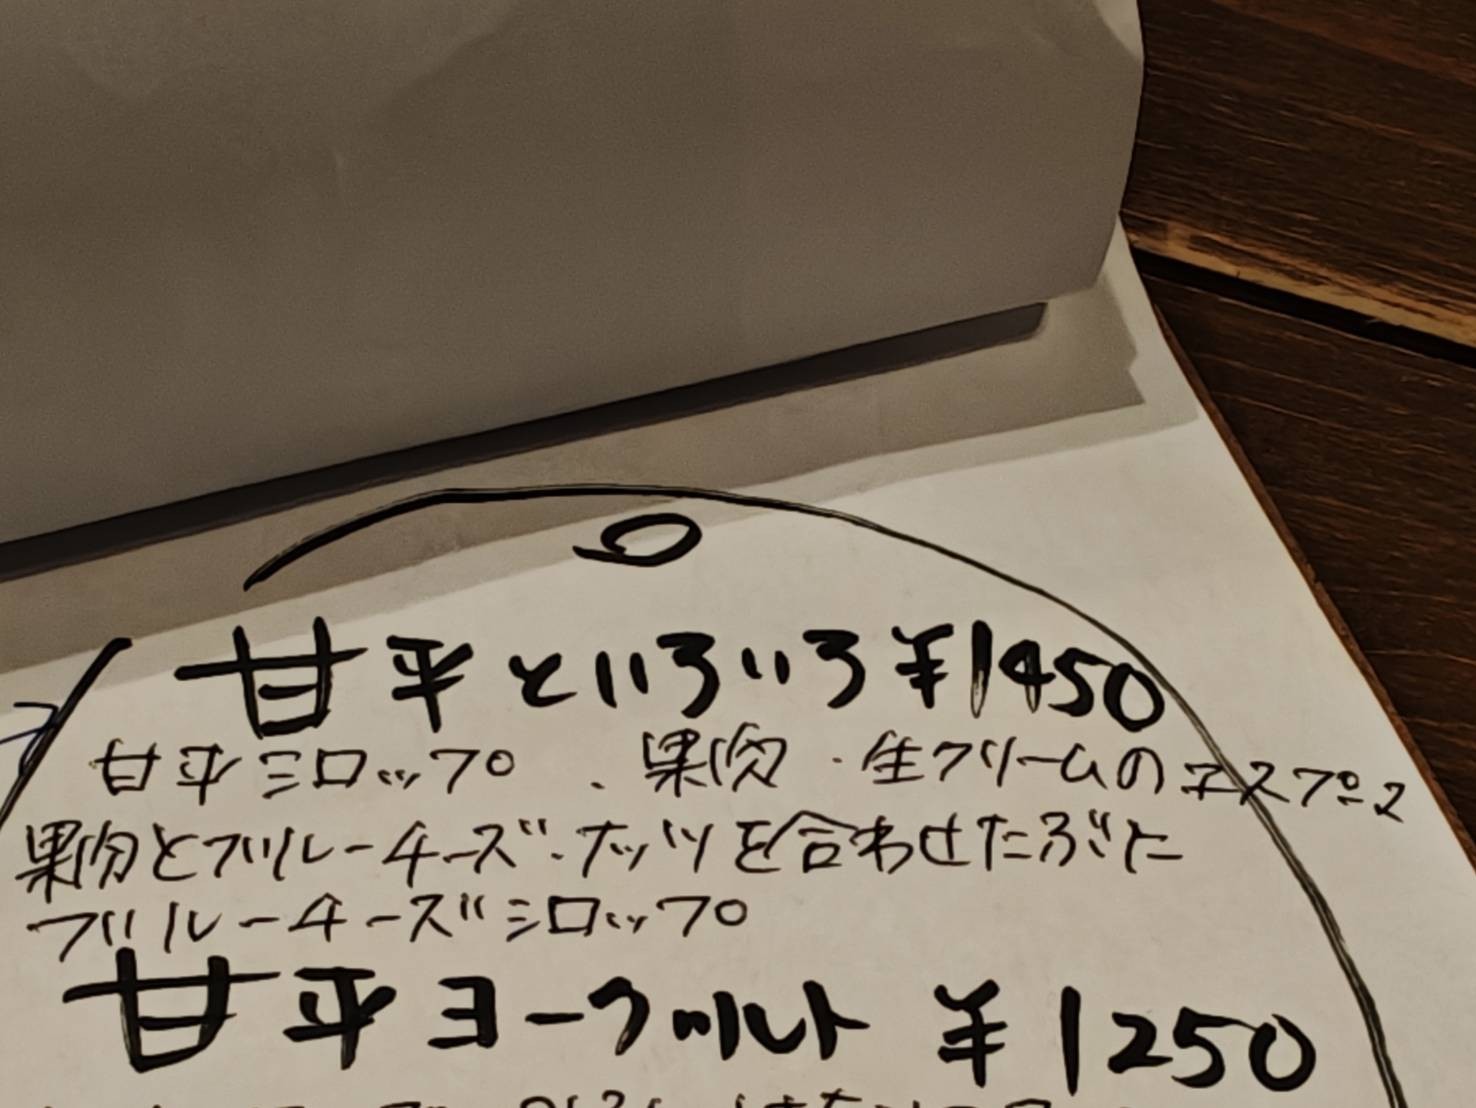 甘平といろいろ ¥1450
甘平シロップ、果肉・生クリームのエスプーマ
果肉とブルーチーズ・ナッツを合わせたぶに
ブルーチーズシロップ
甘平ヨーグルト ¥1250